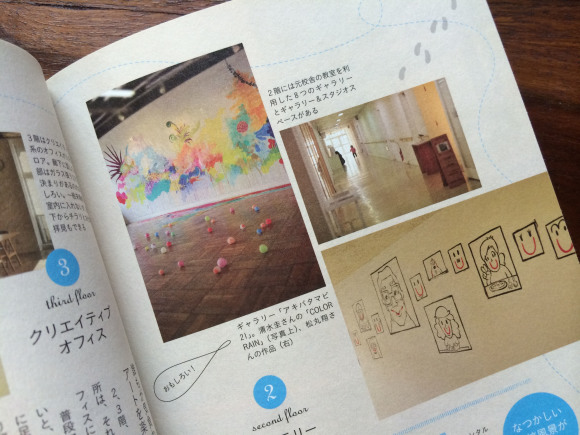 2階には元校舎の教室を利
用した8つのギャラリー
とギャラリー&スタジオス
ペースがある
3階はクリエイ
系のオフィスの
ロア。廊下に面
部はガラス
決まりがあるの
しろい。一般
室内に入れない
下からチラリと
拝見もできる
3
third floor
クリエイティブ
オフィス
ギャラリー「アキバタマビ
21」。清水圭さんの「COLOR
RAIN」(写真上)、松丸翔さ
んの作品(右)
おもしろい!
2
second floor
ラリー
アートを楽
2、3階、
所は、それ
フィスに
普段
いと、
なつかしい
風景が